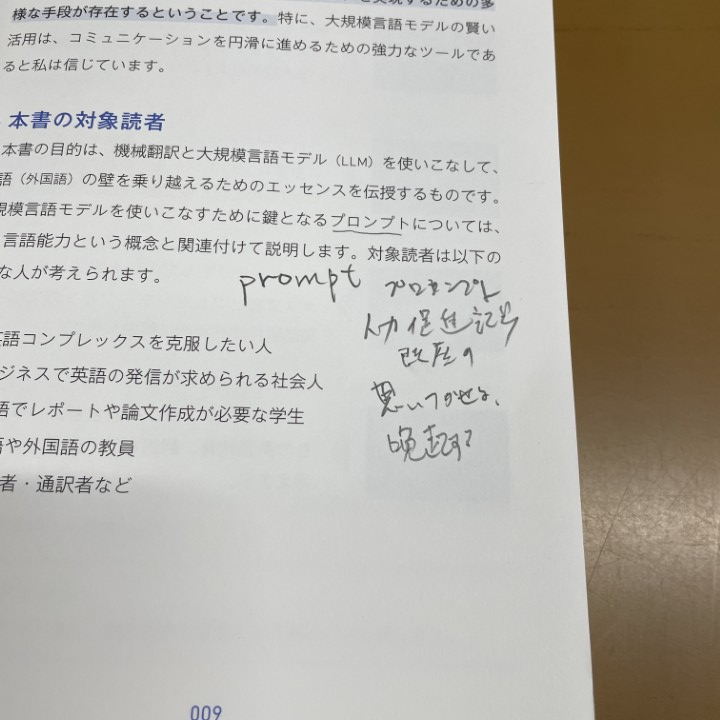 を実現するための多
様な手段が存在するということです。特に、大規模言語モデルの賢い
活用は、コミュニケーションを円滑に進めるための強力なツールであ
ると私は信じています。
本書の対象読者
本書の目的は、機械翻訳と大規模言語モデル（LLM）を使いこなして、
語（外国語）の壁を乗り越えるためのエッセンスを伝授するものです。
規模言語モデルを使いこなすために鍵となるプロンプトについては、
言語能力という概念と関連付けて説明します。対象読者は以下の
な人が考えられます。
prompt プロンプト
入力促進記号
思いつかせる、
英語コンプレックスを克服したい人
ビジネスで英語の発信が求められる社会人
語でレポートや論文作成が必要な学生
語や外国語の教員
者・通訳者など
009